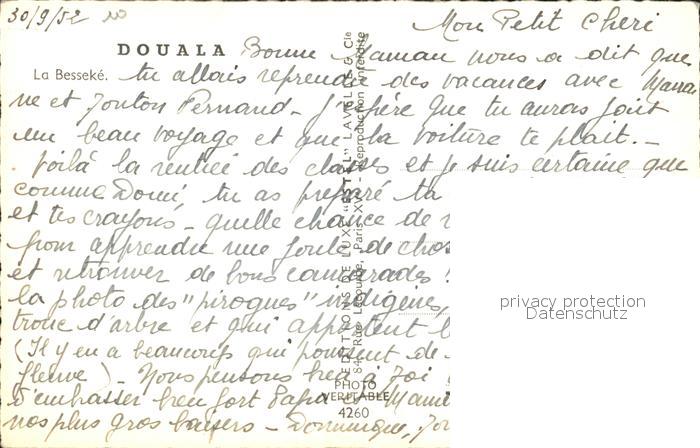 30/9/52
Mon Petit Cheri
DOUALA
Bonne Maman nous a dit que
La Besseké.
tu allais reprendre des vacances avec
ne et Tonton Fernand - J'espère que tu auras fait
un beau voyage et que la voiture te plait. -
Voilà la rentrée des classes et je suis certaine que
comme Domi, tu as préparé ta
et tes crayons - quelle chance de
pour apprendre une foule de chos
et retrouver de bons camarades !
la photo des "pirogues" indigène
tronc d'arbre et qui apportent l
(Il y en a beaucoup qui de
fleuve) - Nous pensons bien à Toi
d'embrasser bien fort Papa et Mami
nos plus gros baisers - Dominique,
EDITIONS DE LUXE "ESTEL" LAVELLE & Cie
84, Rue Lecourbe, Paris XV - Reproduction interdite
PHOTO
VERITABLE
4260
privacy protection
Datenschutz